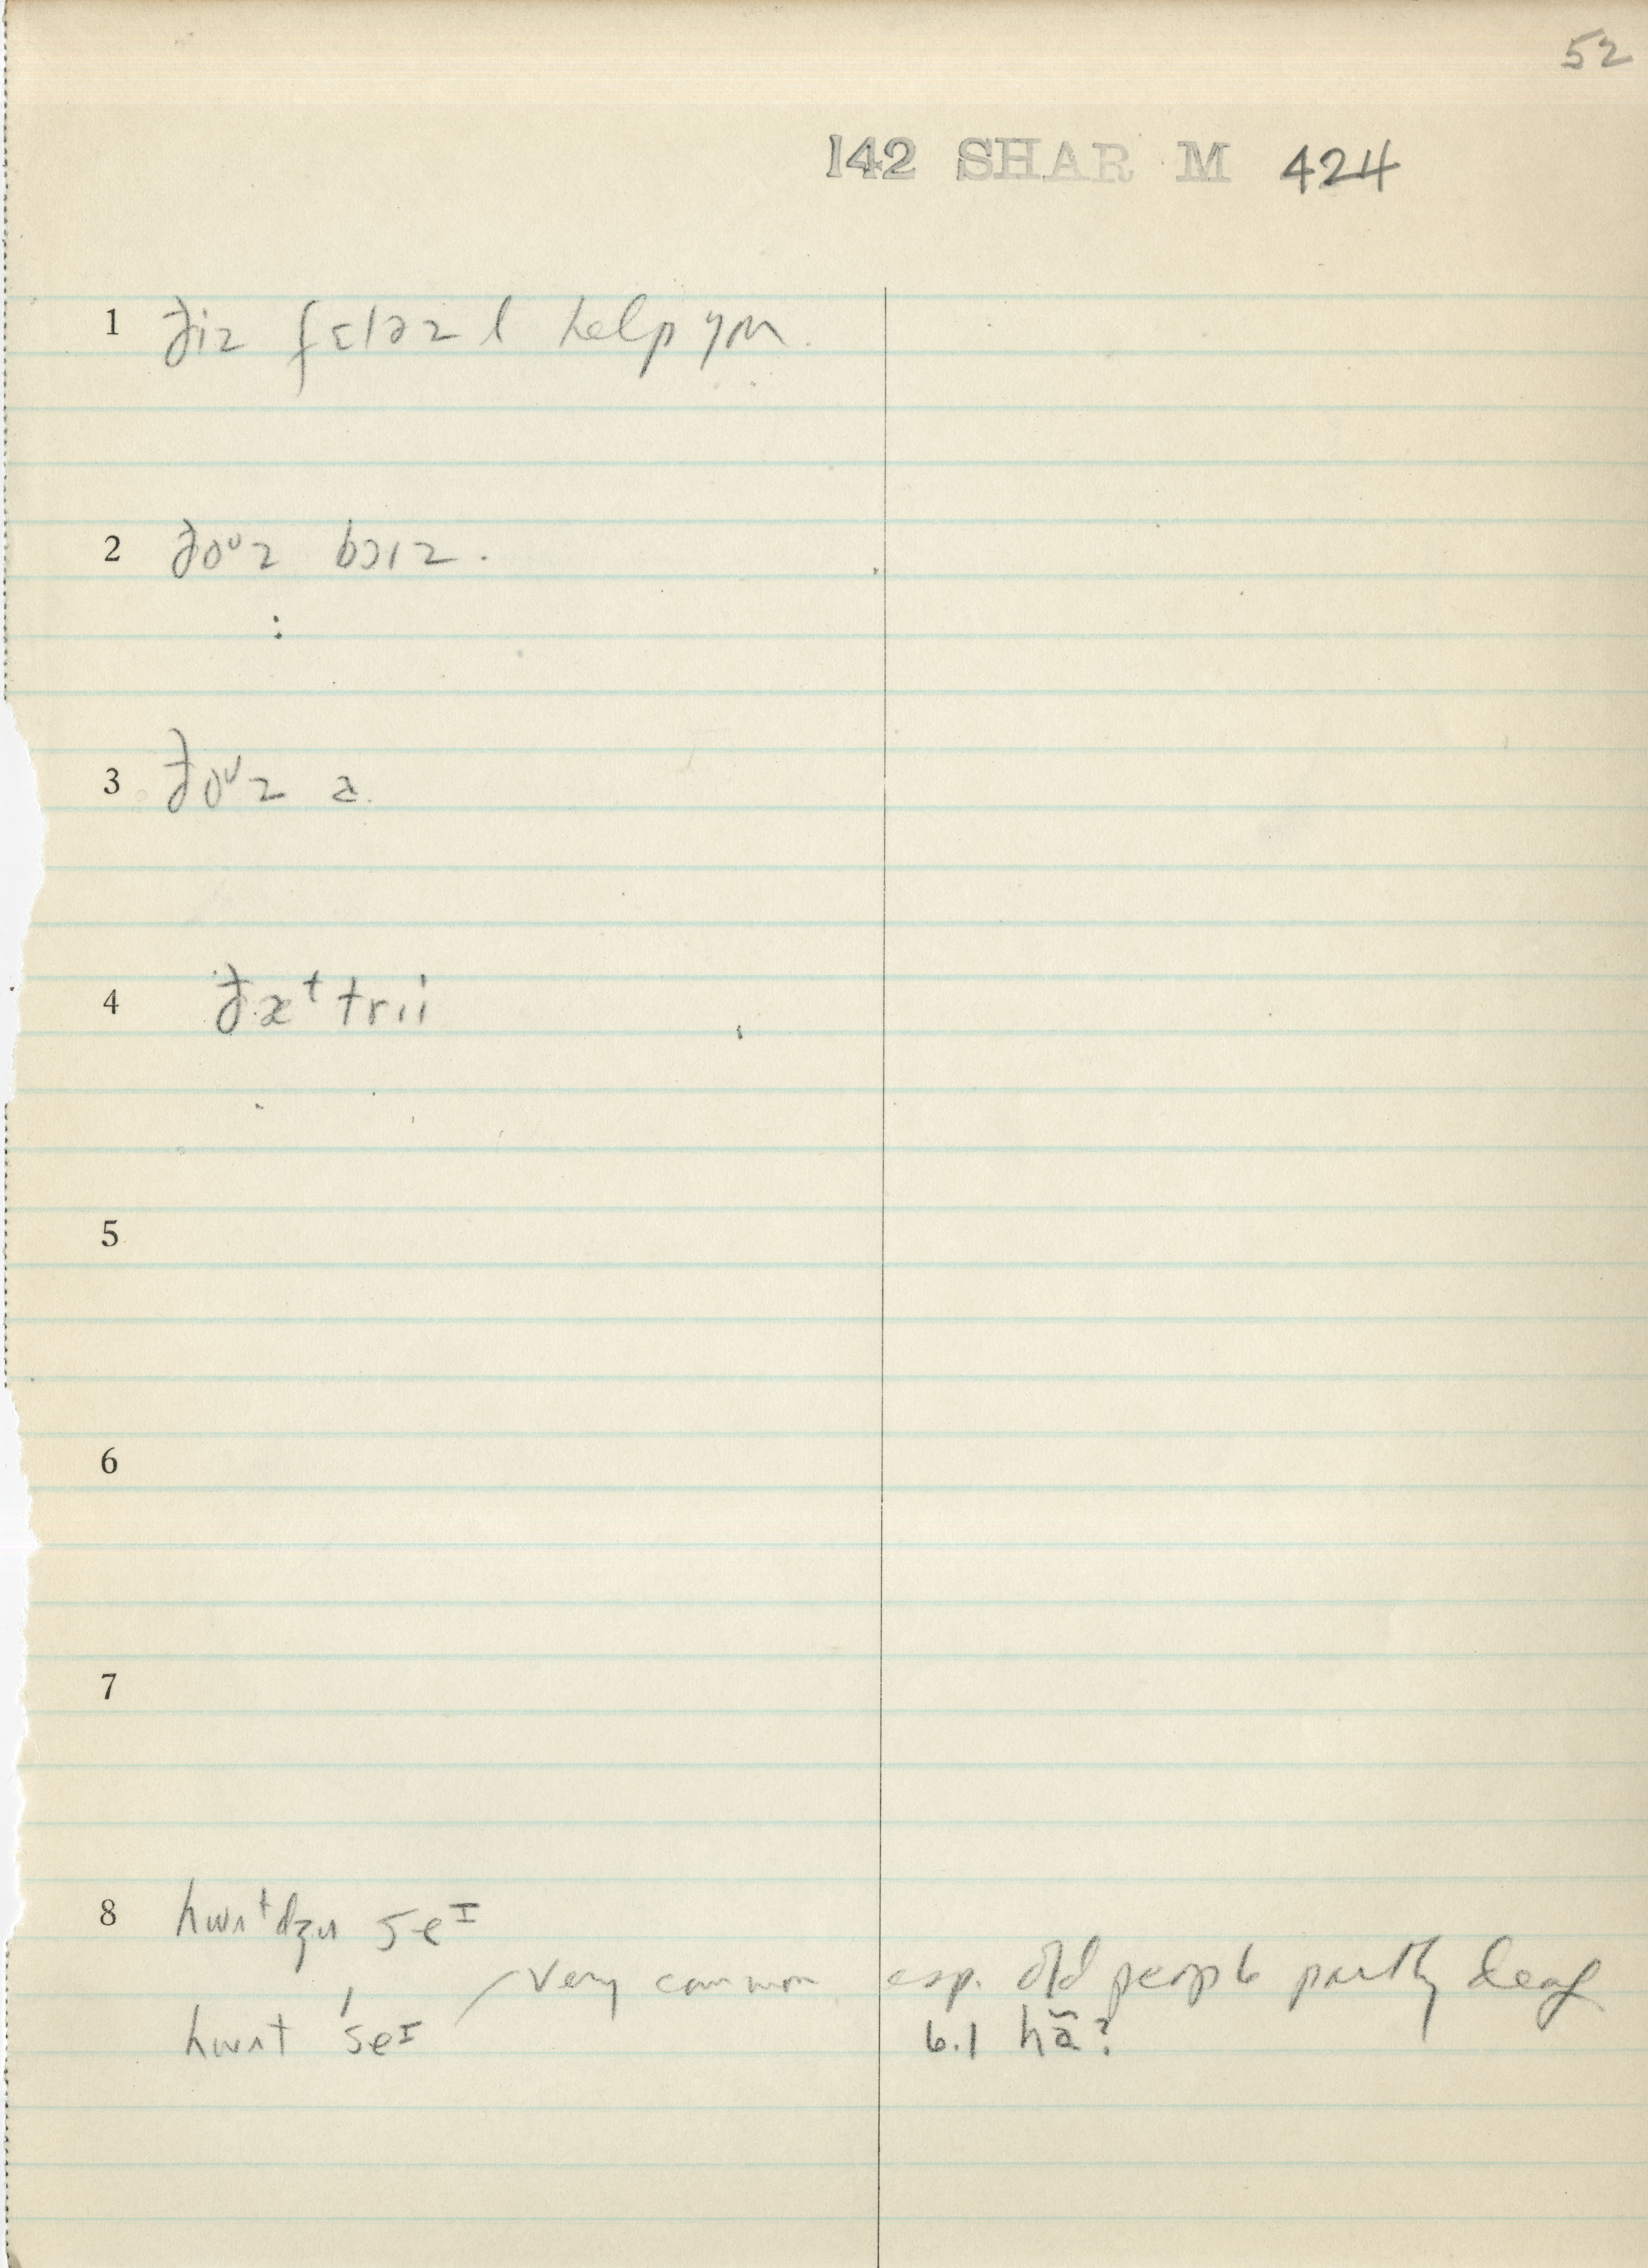 52
142 SHAR M 424
1 ðiz fɛləz l help yʌ.
2 ðoᵁz bɔɪz.
:
3 ðoᵁz ə.
4 ðæᵗ trii
5
6
7
8 hwʌᵗdʒu seᴵ
very common esp. old people partly deaf
hwʌt 'seᴵ 6.1 hã?